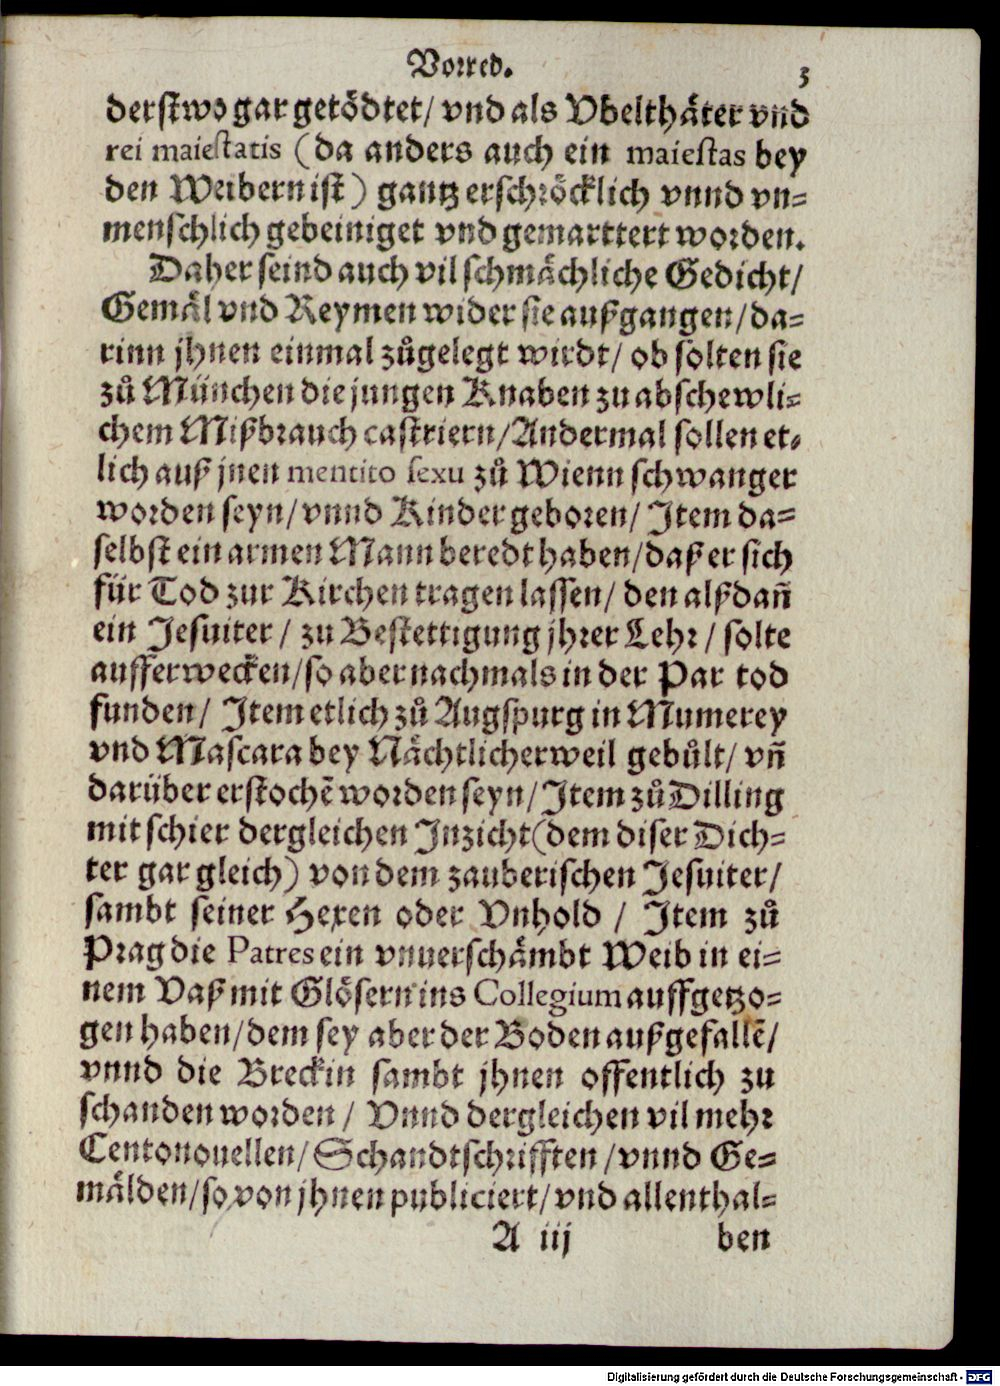 Vorred. 3
derstwo gar getödtet/ vnd als Vbelthäter vnd
rei maiestatis (da anders auch ein maiestas bey
den Weibern ist) gantz erschröcklich vnnd vn=
menschlich gebeiniget vnd gemarttert worden.
Daher seind auch vil schmächliche Gedicht/
Gemäl vnd Reymen wider sie außgangen/ da=
rinn jhnen einmal zůgelegt wirdt/ ob solten sie
zů München die jungen Knaben zu abschewli=
chem Mißbrauch castriern/ Andermal sollen et=
lich auß jnen mentito sexu zů Wienn schwanger
worden seyn/ vnnd Kinder geboren/ Item da=
selbst ein armen Mann beredt haben/ daß er sich
für Tod zur Kirchen tragen lassen/ den alßdañ
ein Jesuiter / zu Bestettigung jhrer Lehr / solte
aufferwecken/ so aber nachmals in der Par tod
funden/ Item etlich zů Augspurg in Mumerey
vnd Mascara bey Nächtlicherweil gebůlt/ vñ
darüber erstochē worden seyn/ Item zů Dilling
mit schier dergleichen Inzicht (dem diser Dich=
ter gar gleich) von dem zauberischen Jesuiter/
sambt seiner Hexen oder Vnhold / Item zů
Prag die Patres ein vnuerschämbt Weib in ei=
nem Vaß mit Glösern ins Collegium auffgetzo=
gen haben/ dem sey aber der Boden außgefallē/
vnnd die Breckin sambt jhnen offentlich zu
schanden worden / Vnnd dergleichen vil mehr
Centonouellen/ Schandtschrifften / vnnd Ge=
mälden/ so von jhnen publiciert/ vnd allenthal=
A iij ben
Digitalisierung gefördert durch die Deutsche Forschungsgemeinschaft - DFG